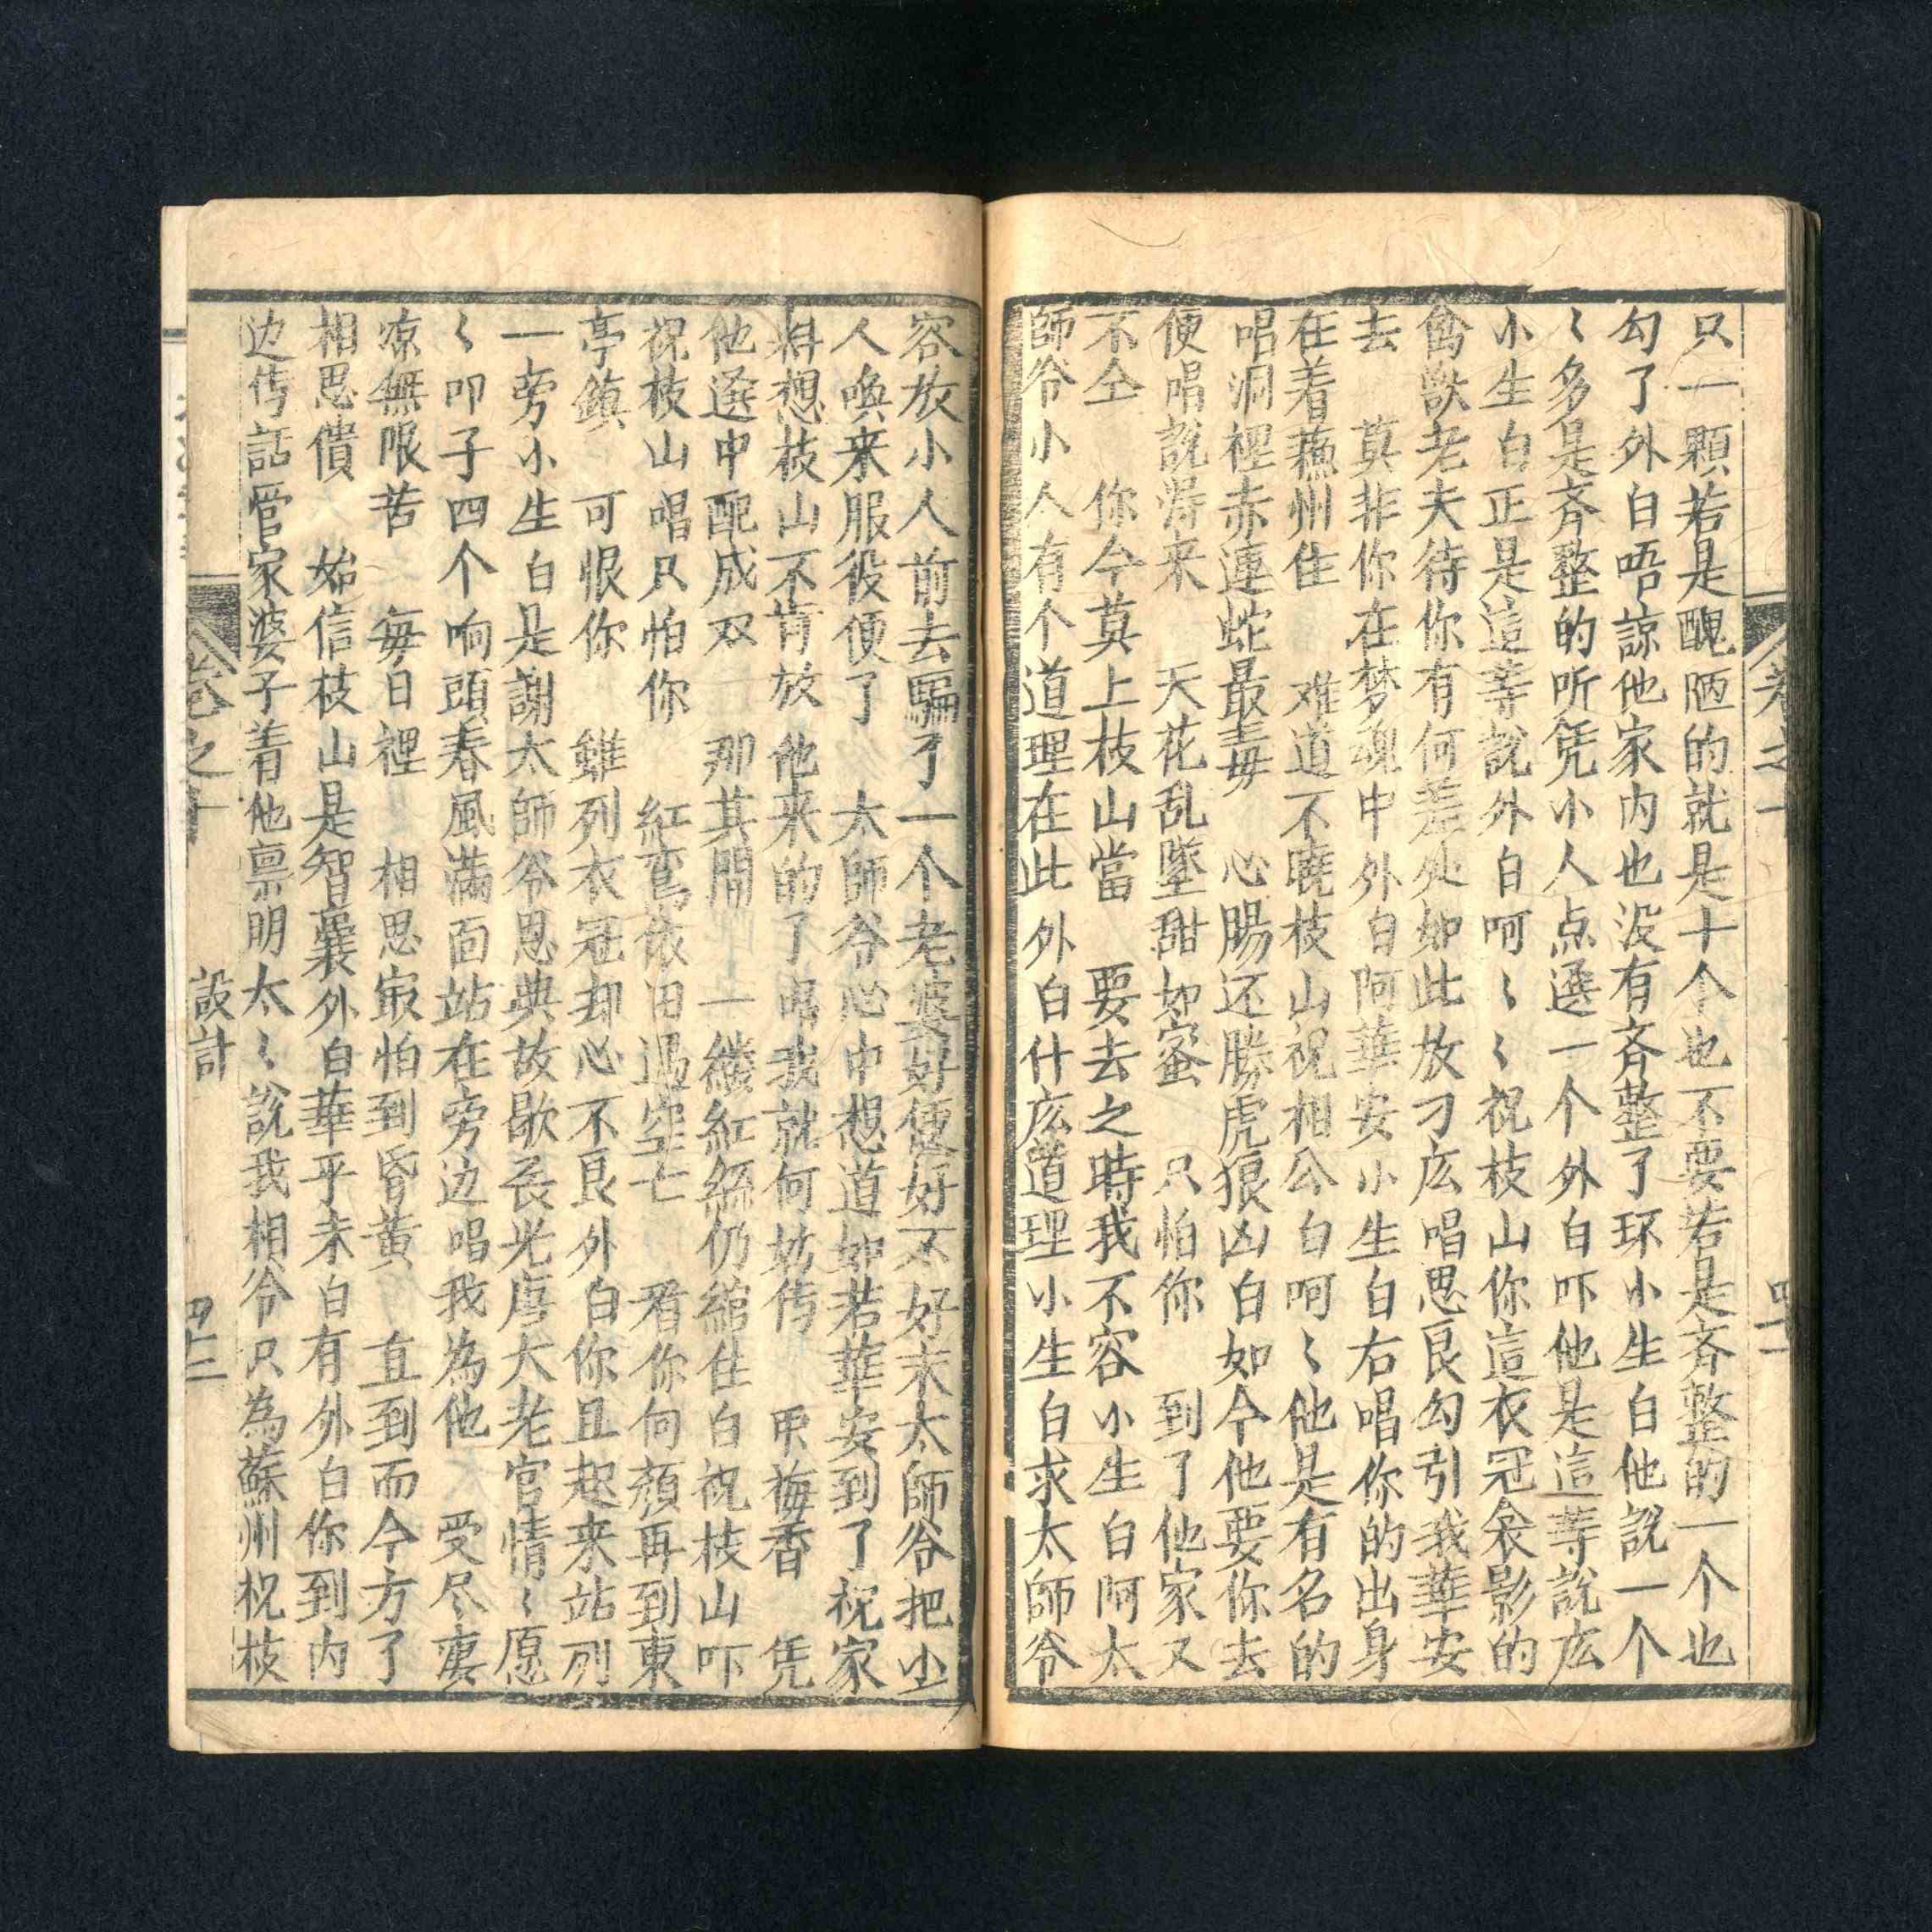 只一顆若是醜陋的就是十个也不要若是斉整的一个也
勾了外白唔諒他家内也没有斉整了环小生白他說一个
〻多是斉整的听凭小人点選一个外白吓他是這等說庅
小生白正是這等說外白呵〻〻祝枝山你這衣冠衾影的
禽獸老夫待你有何差处如此放刁庅唱思良勾引我華安
去 莫非你在梦魂中外白阿華安小生白右唱你的出身
在着蘓州住 难道不曉枝山祝相公白呵〻他是有名的
唱洞裡赤連蛇最毒 心腸还勝虎狼凶白如今他要你去
便唱說得来 天花乱墜甜如蜜 只怕你 到了他家又
不仝 你今莫上枝山當 要去之時我不容小生白阿太
師爷小人有个道理在此外白什庅道理小生白求太師爷
卷之十
容放小人前去騙了一个老婆好便好不好末太師爷把小
人喚来服役便了 太師爷心中想道如若華安到了祝家
料想枝山不肯放 他来的了唱我就何妨传 梅香 凭
他選中配成双 那其間 一縷紅絲仍綰住白祝枝山吓
祝枝山唱只怕你 紅鸾依旧遇空亡 看你何顏再到東
亭鎮 可恨你 雖列衣冠却心不良外白你且起来站列
一旁小生白是謝太師爷恩典故歇丟光唐大老官情〻愿
〻叩子四个响頭春風滿面站在旁边唱我為他 受尽凄
凉無限苦 每日裡 相思最怕到昏黃 直到而今方了
相思債 始信枝山是智囊外白華平末白有外白你到内
边传話管家婆子着他禀明太〻說我相爷只為蘇州祝枝
卷之十
設計
四十二